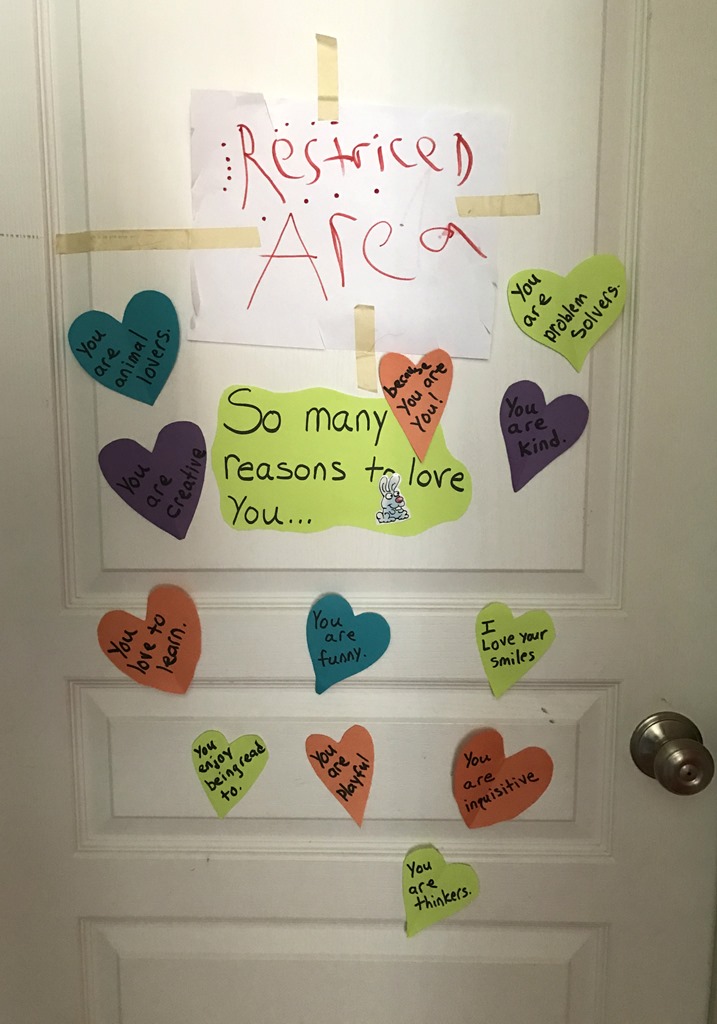 Restriced
Area
You
are
problem
solvers.
You
are
animal
lovers.
because
you are
you!
So many
reasons to love
you...
You
are
kind.
You
are
creative
You
love to
learn.
You
are
funny.
I
Love your
smiles
You
enjoy
being read
to.
You
are
playful
You
are
inquisitive
You
are
thinkers.